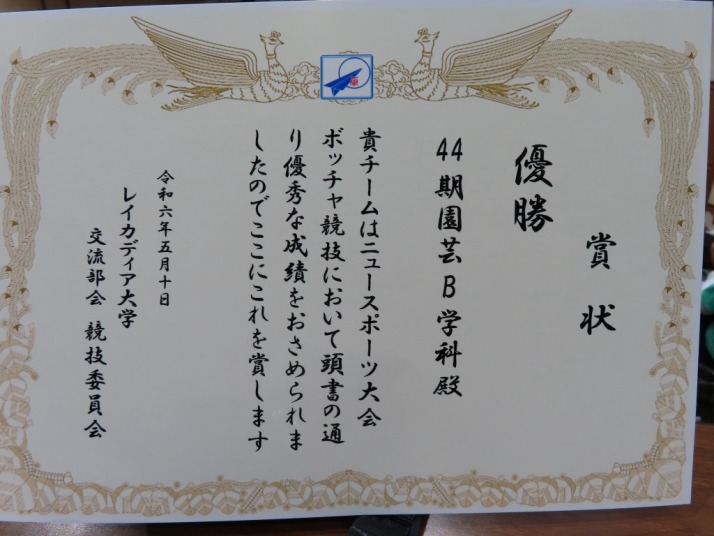 賞状
優勝
44期園芸B学科殿
貴チームはニュースポーツ大会
ボッチャ競技において頭書の通
り優秀な成績をおさめられま
したのでここにこれを賞します
令和六年五月十日
レイカディア大学
交流部会 競技委員会